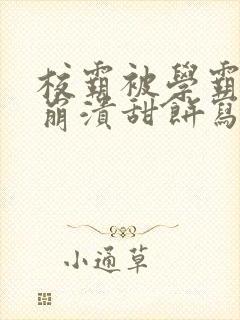 校霸被學霸
崩潰甜餅寫
小通草